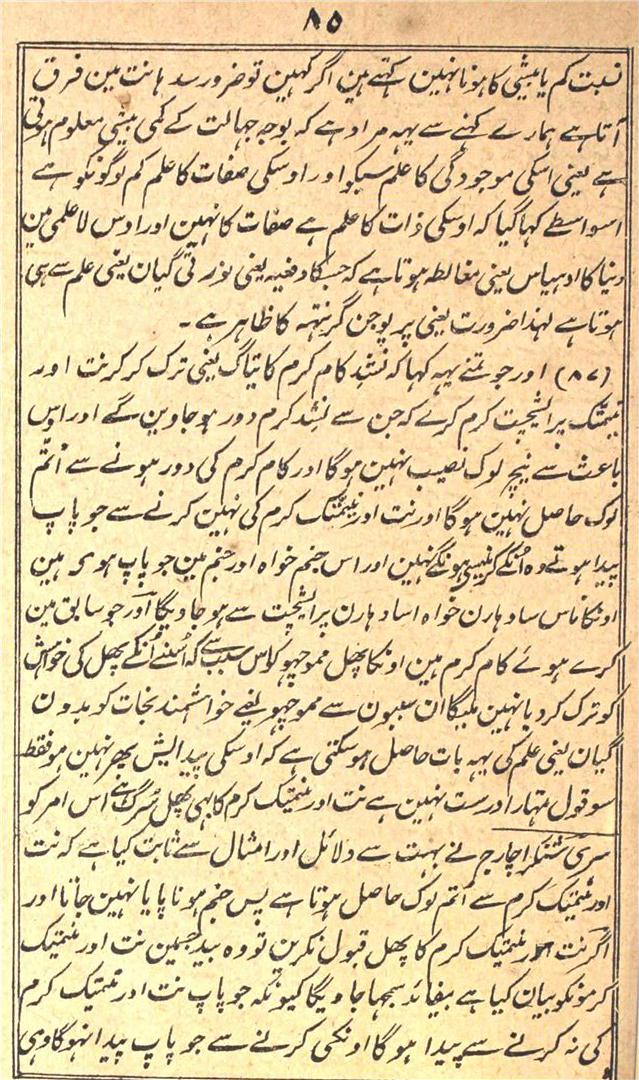 ٨٥
نسبت کم یا بیشی کا ہونا نہین کہتے ہین اگر کہین تو ضرور سدہانت مین فرق
آتا ہے ہمارے کہنے سے یہہ مراد ہے کہ بوجہ جہالت کے کمی بیشی معلوم ہوتی
ہے یعنی اسکی موجودگی کا علم سبکو اور اوسکی صفات کا علم کم لوگونکو ہے
اسواسطے کہا گیا کہ اوسکی ذات کا علم ہے صفات کا نہین اور اوس لاعلمی مین
دنیا کا ادہیاس یعنی مغالطہ ہوتا ہے کہ جسکا دفعیہ یعنی نورتی گیان یعنی علم سے ہی
ہوتا ہے لہذا ضرورت یعنی پریوجن گرنتہہ کا ظاہر ہے ۔
(٨٧) اور جو تمنے یہہ کہا کہ نشد کام کرم کا تیاگ یعنی ترک کرکر نت اور
نیمتک پرایشچت کرم کرے کہ جن سے نشد کرم دور ہوجاوین گے اور اوس
باعث سے نیچ لوک نصیب نہین ہوگا اور کام کرم کی دور ہونے سے اُتم
لوک حاصل نہین ہوگا اور نت اور نیمتک کرم کی نہین کرنے سے جو پاپ
پیدا ہوتے وہ اُنکے کرنیسے ہونگے نہین اور اس جنم خواہ اور جنم مین جو پاپ ہوی ہین
اونکا ناس سادہارن خواہ اسادہارن پرایشچت سے ہوجاویگا اور جو سابق مین
کرے ہوئے کام کرم ہین اونکا پھل مموچھو کو اس سبب سے کہ اُسنے اُنکے پھل کی خواہش
کو ترک کردیا نہین ملیگا ان سببون سے مموچھو یعنے خواہشمند نجات کو بدون
گیان یعنی علم کی یہہ بات حاصل ہوسکتی ہے کہ اوسکی پیدایش پھر نہین ہو فقط
سو قول تمہارا درست نہین ہے نت اور نیمتک کرم کا بہی پھل سُرگ ہے اس امر کو
سری شنکر اچارج نے بہت سے دلائل اور امثال سے ثابت کیا ہے کہ نت
اور نیمتک کرم سے اُتم لوک حاصل ہوتا ہے پس جنم ہونا پایا نہین جاتا اور
اگر نت اور نیمتک کرم کا پھل قبول نکرین تو وہ بید جسمین نت اور نیمتک
کرمونکو بیان کیا ہے بیفائدہ سمجہا جاویگا کیونکہ جو پاپ نت اور نیمتک کرم
کی نہ کرنے سے پیدا ہوگا اونکی کرنے سے جو پاپ پیدا نہوگا وہی